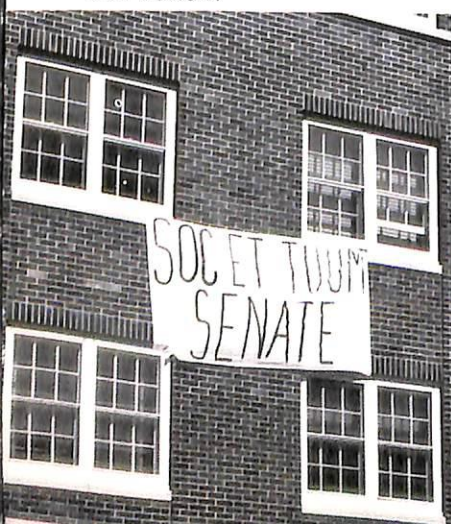 SOC ET TUUM
SENATE